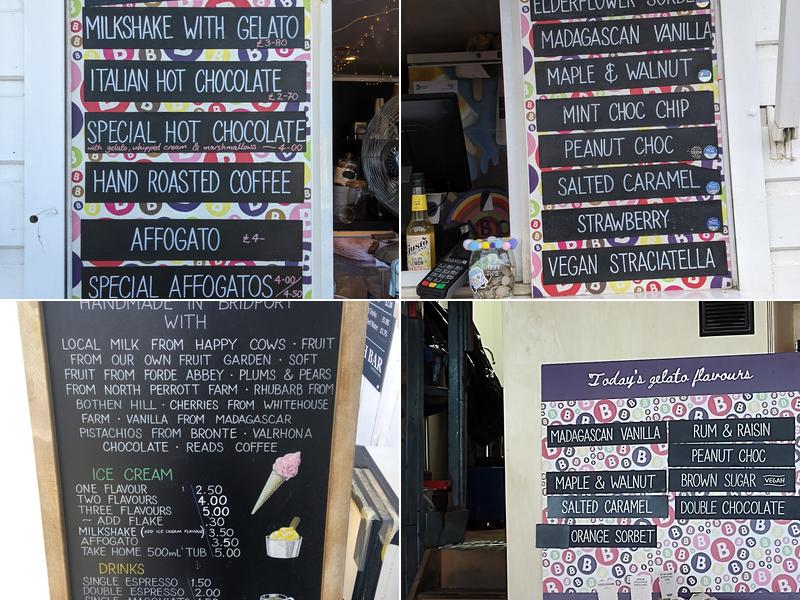 MILKSHAKE WITH GELATO
£3-80
ITALIAN HOT CHOCOLATE
£2-70
SPECIAL HOT CHOCOLATE
with gelato, whipped cream & marshmallows — 4-00
HAND ROASTED COFFEE
AFFOGATO £4-
SPECIAL AFFOGATOS 4-00
4-50
ELDERFLOWER SORBE
MADAGASCAN VANILLA
MAPLE & WALNUT
MINT CHOC CHIP
PEANUT CHOC
SALTED CARAMEL
STRAWBERRY
VEGAN STRACIATELLA
HANDMADE IN BRIDPORT
WITH
LOCAL MILK FROM HAPPY COWS · FRUIT
FROM OUR OWN FRUIT GARDEN · SOFT
FRUIT FROM FORDE ABBEY · PLUMS & PEARS
FROM NORTH PERROTT FARM · RHUBARB FROM
BOTHEN HILL · CHERRIES FROM WHITEHOUSE
FARM · VANILLA FROM MADAGASCAR
PISTACHIOS FROM BRONTE · VALRHONA
CHOCOLATE · READS COFFEE
ICE CREAM
ONE FLAVOUR 2.50
TWO FLAVOURS 4.00
THREE FLAVOURS 5.00
~ ADD FLAKE .30
MILKSHAKE (ADD ICE CREAM FLAVOUR) 3.50
AFFOGATO 3.50
TAKE HOME 500ml TUB 5.00
DRINKS
SINGLE ESPRESSO 1.50
DOUBLE ESPRESSO 2.00
SINGLE MACCHIATO
BAR
Today's gelato flavours
MADAGASCAN VANILLA
RUM & RAISIN
PEANUT CHOC
MAPLE & WALNUT
BROWN SUGAR VEGAN
SALTED CARAMEL
DOUBLE CHOCOLATE
ORANGE SORBET